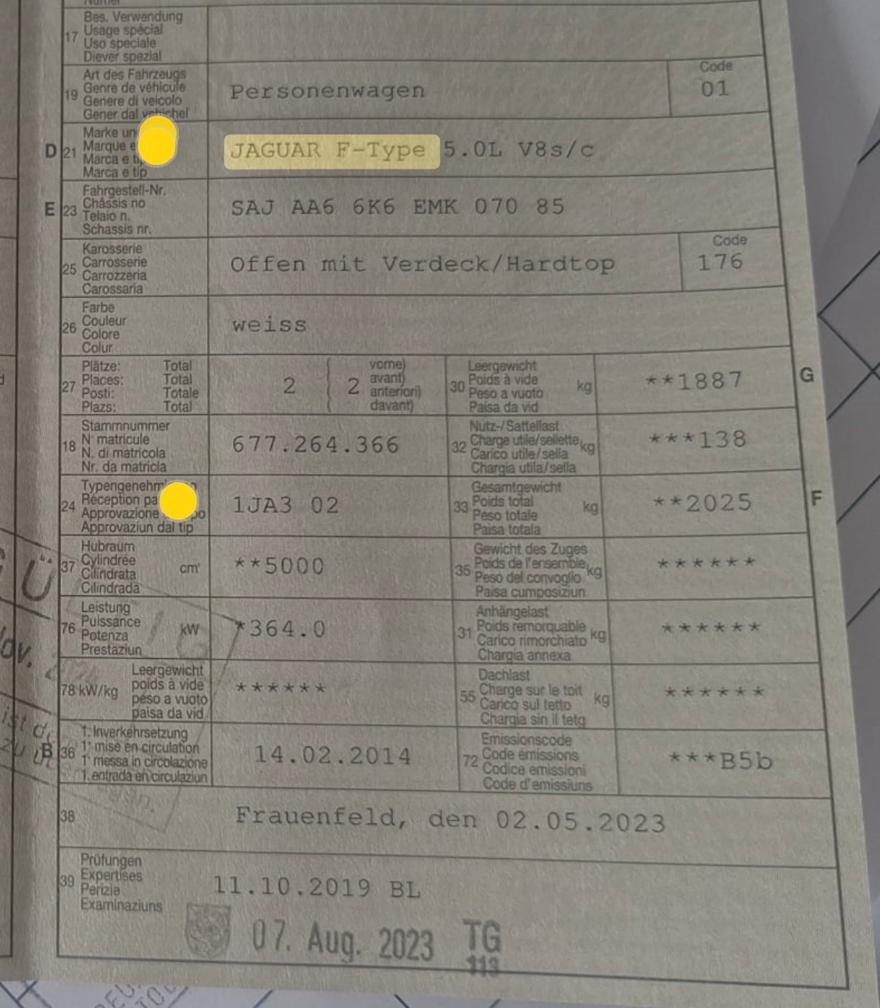 17 Bes. Verwendung
Usage spécial
Uso speciale
Diever spezial
19 Art des Fahrzeugs
Genre de véhicule
Genere di veicolo
Gener dal vehichel
Personenwagen
Code
01
D 21 Marke un
Marque e
Marca e ti
Marca e tip
JAGUAR F-Type 5.0L V8s/c
E 23 Fahrgestell-Nr.
Châssis no
Telaio n.
Schassis nr.
SAJ AA6 6K6 EMK 070 85
25 Karosserie
Carrosserie
Carrozzeria
Carossaria
Offen mit Verdeck/Hardtop
Code
176
26 Farbe
Couleur
Colore
Colur
weiss
27 Plätze: Total
Places: Total
Posti: Totale
Plazs: Total
2 2 vorne)
avant)
anteriori)
davant)
30 Leergewicht
Poids à vide
Peso a vuoto
Paisa da vid
kg
**1887
G
18 Stammnummer
N° matricule
N. di matricola
Nr. da matricla
677.264.366
32 Nutz-/Sattellast
Charge utile/sellette
Carico utile/sella
Chargia utila/sella
kg
***138
24 Typengenehm
Réception pa
Approvazione po
Approvaziun dal tip
1JA3 02
33 Gesamtgewicht
Poids total
Peso totale
Paisa totala
kg
**2025
F
37 Hubraum
Cylindrée
Cilindrata
Cilindrada
cm³
**5000
35 Gewicht des Zuges
Poids de l'ensemble
Peso del convoglio
Paisa cumposiziun
kg
******
76 Leistung
Puissance
Potenza
Prestaziun
kW
*364.0
31 Anhängelast
Poids remorquable
Carico rimorchiato
Chargia annexa
kg
******
78 kW/kg Leergewicht
poids à vide
peso a vuoto
paisa da vid
******
55 Dachlast
Charge sur le toit
Carico sul tetto
Chargia sin il tetg
kg
******
B 36 1. Inverkehrsetzung
1e mise en circulation
1a messa in circolazione
1. entrada en circulaziun
14.02.2014
72 Emissionscode
Code émissions
Codice emissioni
Code d'emissiuns
***B5b
38 Frauenfeld, den 02.05.2023
39 Prüfungen
Expertises
Perizie
Examinaziuns
11.10.2019 BL
07. Aug. 2023 TG
113